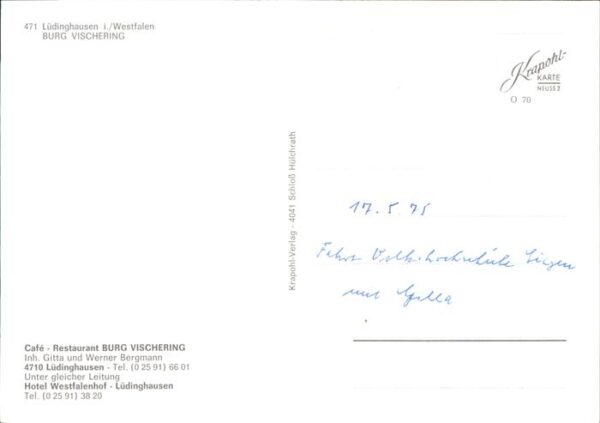 471 Lüdinghausen i./Westfalen
BURG VISCHERING
Krapohl-
KARTE
NEUSS 2
O 70
Krapohl-Verlag - 4041 Schloß Hülchrath
17.5.75
Fahrt Volkshochschule Siegen
und
Café - Restaurant BURG VISCHERING
Inh. Gitta und Werner Bergmann
4710 Lüdinghausen - Tel. (0 25 91) 66 01
Unter gleicher Leitung
Hotel Westfalenhof - Lüdinghausen
Tel. (0 25 91) 38 20